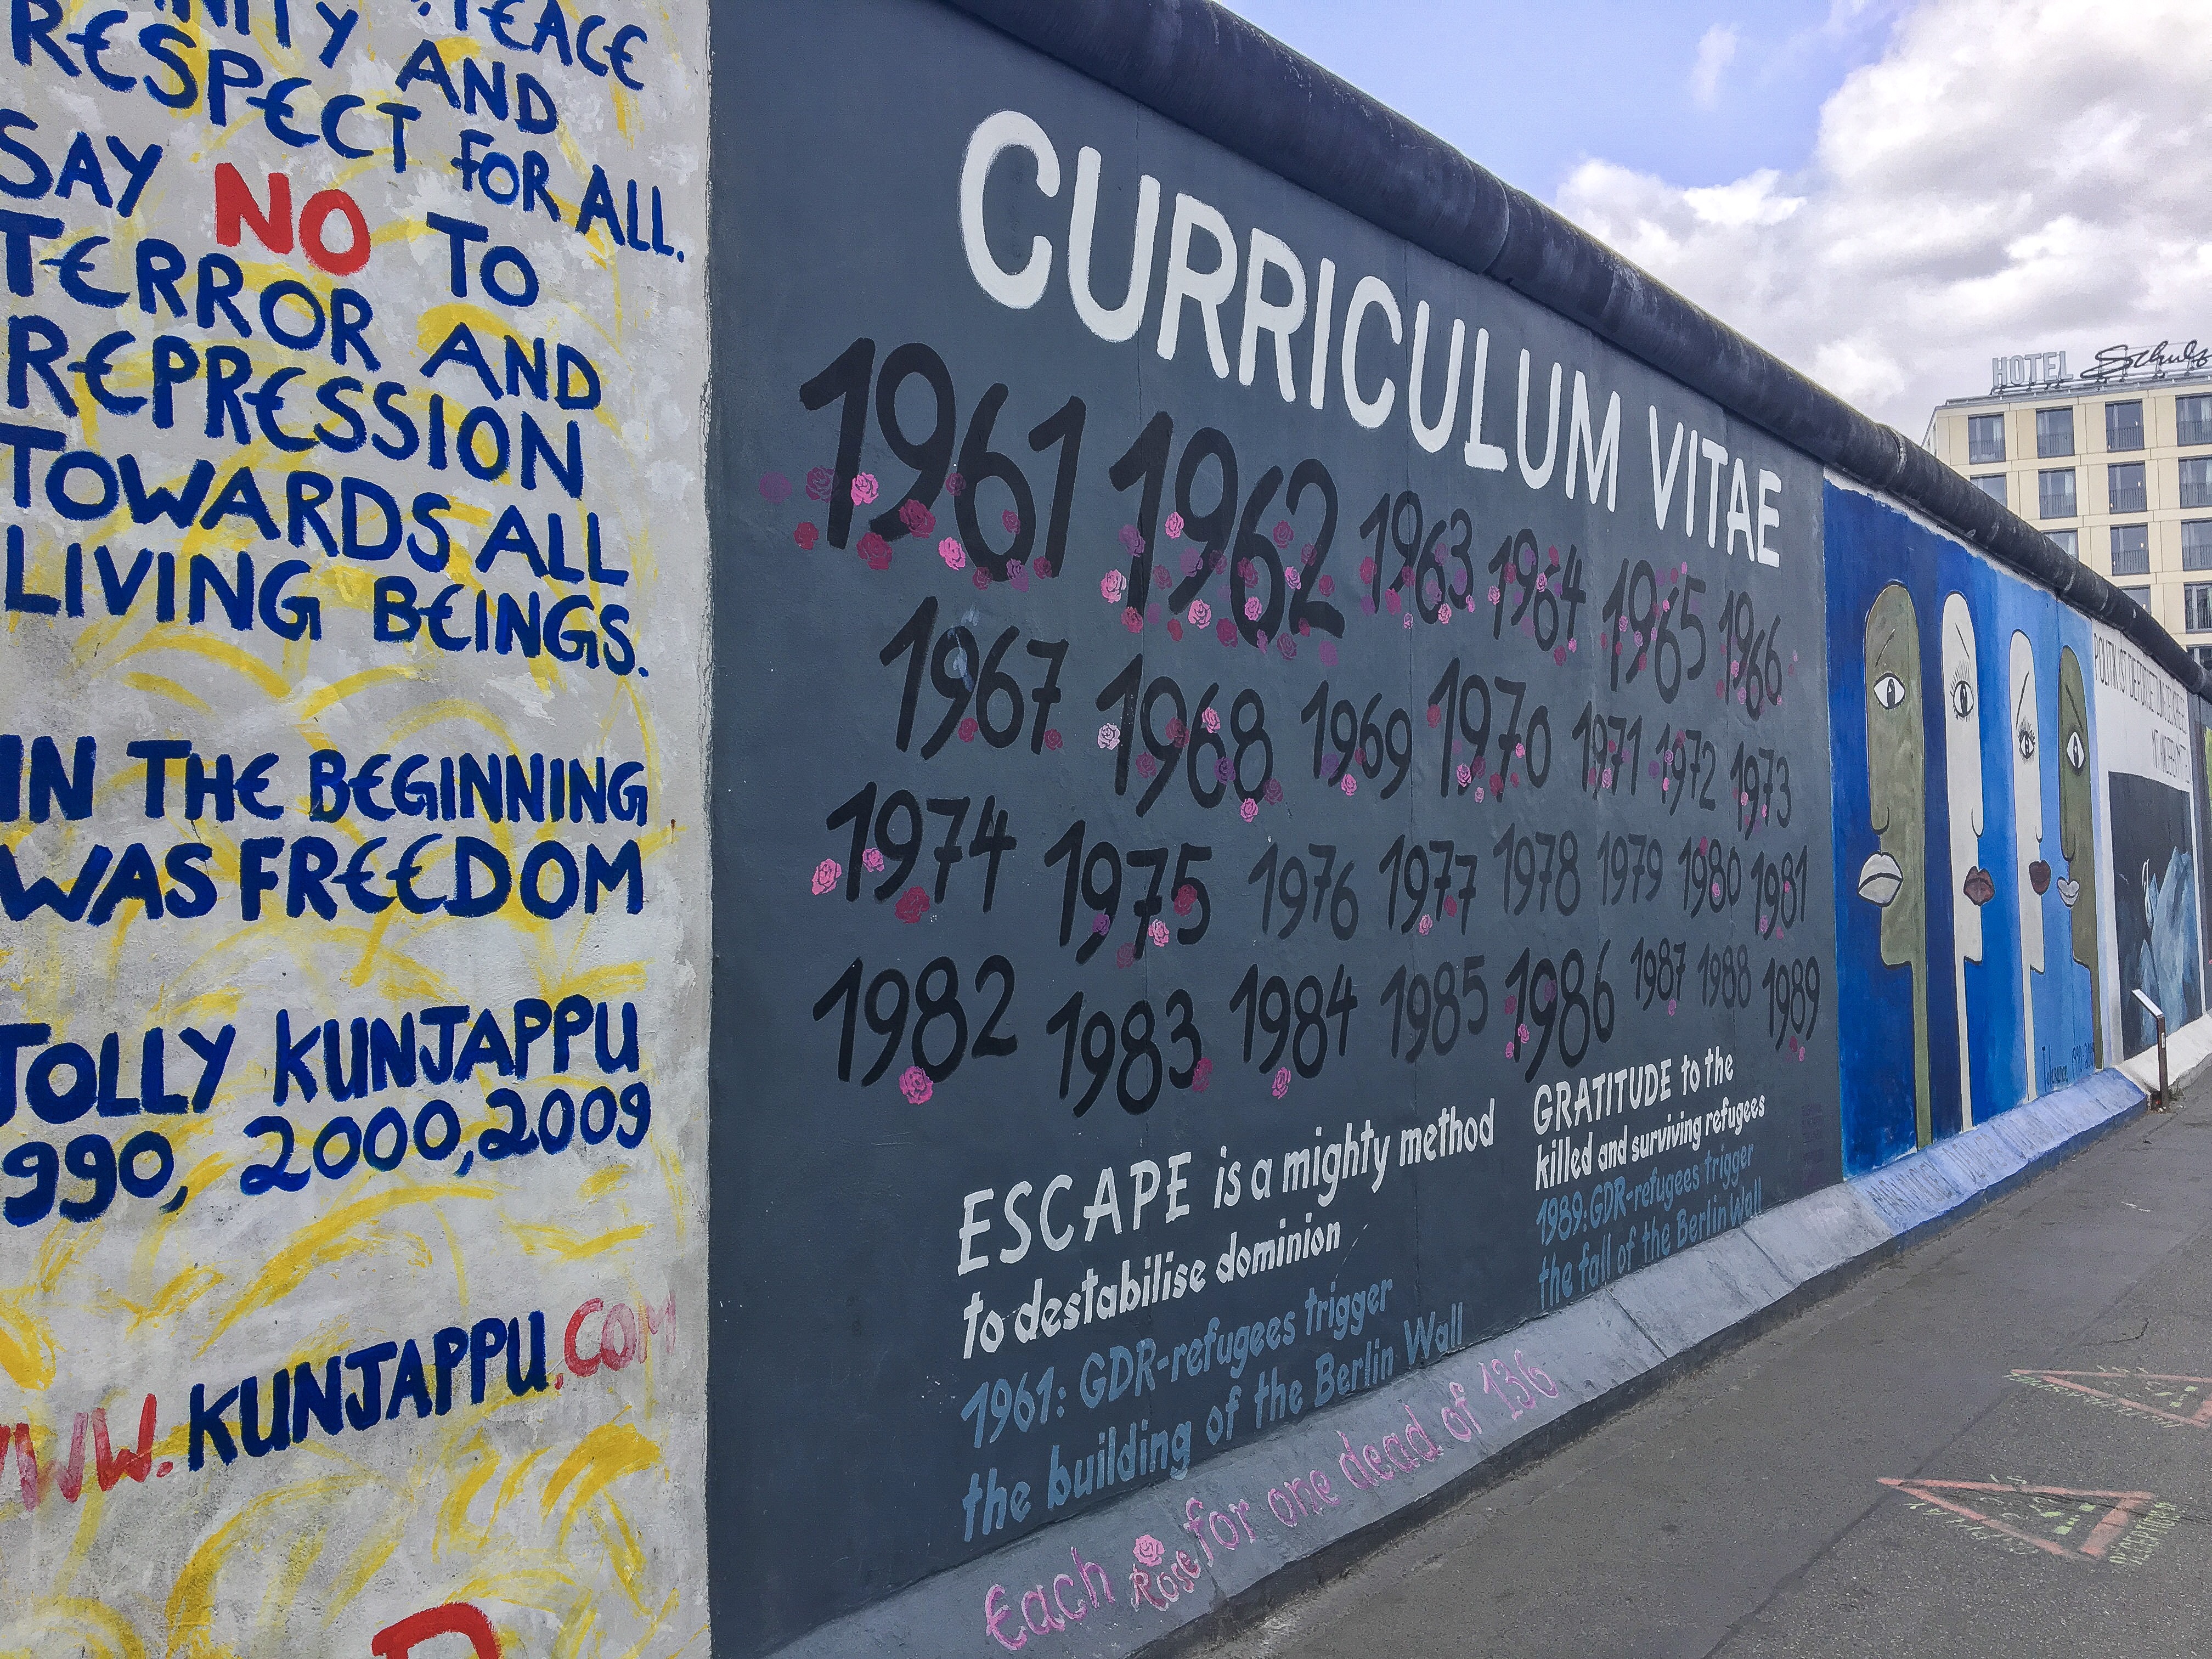 PEACE
AND
RESPECT FOR ALL.
SAY NO TO
TERROR AND
REPRESSION
TOWARDS ALL
LIVING BEINGS.
IN THE BEGINNING
WAS FREEDOM
JOLLY KUNJAPPU
990, 2000, 2009
WWW.KUNJAPPU.COM
CURRICULUM VITAE
1961 1962 1963 1964 1965 1966
1967 1968 1969 1970 1971 1972 1973
1974 1975 1976 1977 1978 1979 1980 1981
1982 1983 1984 1985 1986 1987 1988 1989
ESCAPE is a mighty method
to destabilise dominion
1961: GDR-refugees trigger
the building of the Berlin Wall
GRATITUDE to the
killed and surviving refugees
1989: GDR-refugees trigger
the fall of the Berlin Wall
Each Rose for one dead of 136
HOTEL Schulz
POLITIK IST DIE FORTSETZUNG DES KRIEGES
MIT ANDEREN MITTELN